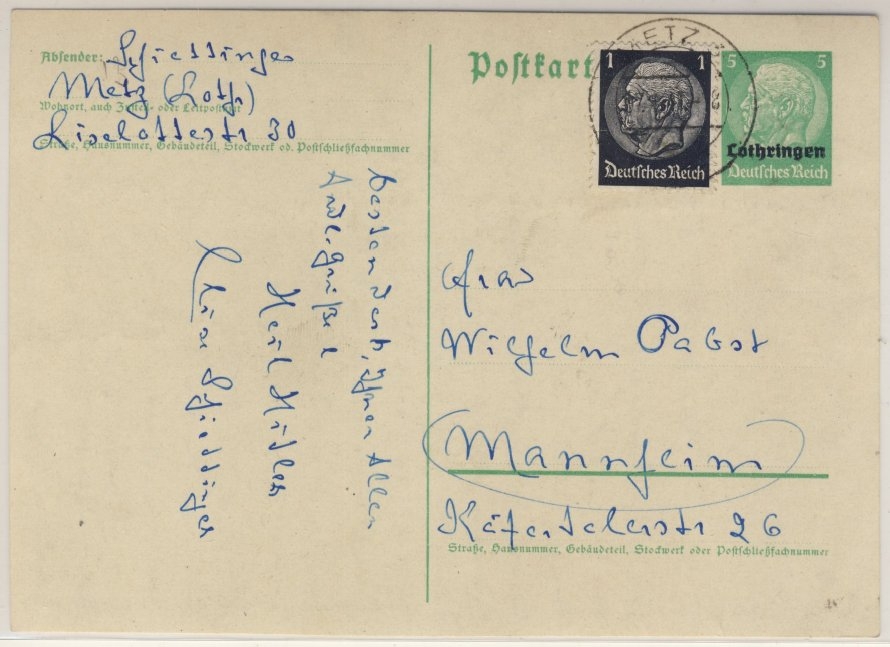 Absender: Schiessinger
Metz (Lothr)
Wohnort, auch Zustell- oder Leitpostamt
Liselottestr 30
Straße, Hausnummer, Gebäudeteil, Stockwerk od. Postschließfachnummer
besten Dank, Ihnen Allen
Grüße
Heil Hitler
Postkarte
METZ
1 1
Deutsches Reich
5 5
Lothringen
Deutsches Reich
Frau
Wilhelm Pabst
Mannheim
Käfertalerstr 26
Straße, Hausnummer, Gebäudeteil, Stockwerk oder Postschließfachnummer